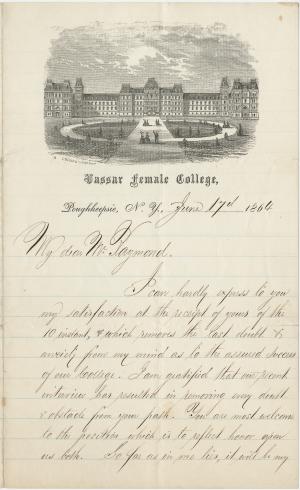 Vassar Female College,
Poughkeepsie, N. Y. June 17d 1864
My dear Mr Raymond.
I can hardly express to you
my satisfaction at the receipt of yours of the
10 instant, & which removes the last doubt &
anxiety from my mind as to the assured success
of our College. I am gratified that our recent
has resulted in removing every doubt
& obstacle from your path. You are most welcome
to the position which is to reflect honor upon
us both. So far as in me lies, it will be my